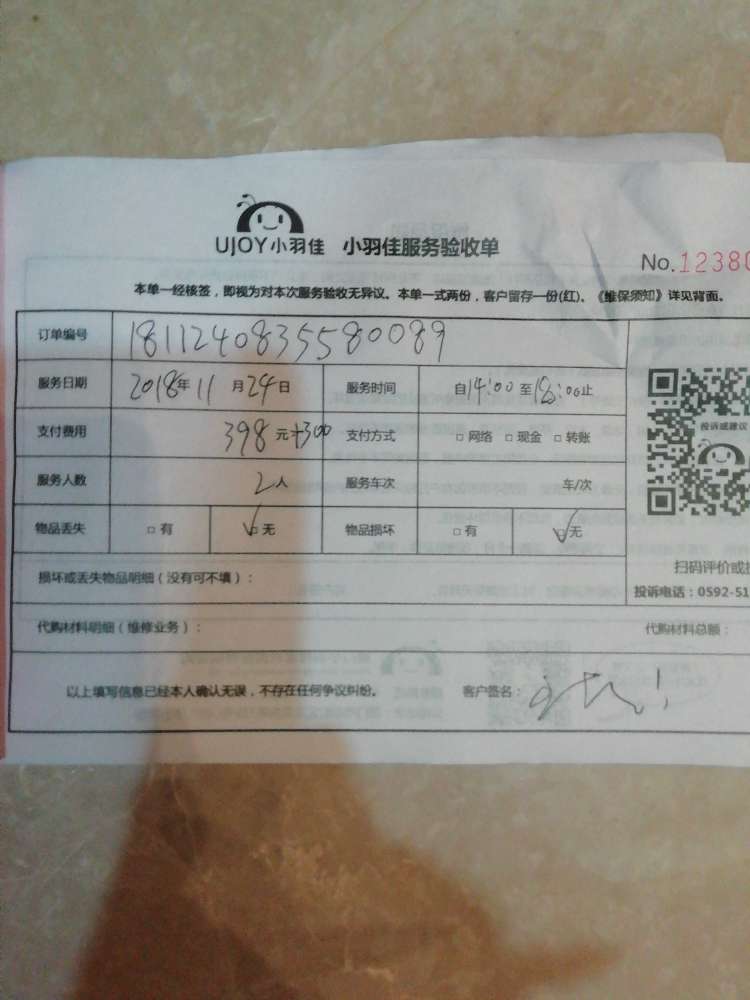 UJOY小羽佳 小羽佳服务验收单
No.12380
本单一经核签，即视为对本次服务验收无异议。本单一式两份，客户留存一份(红)。《维保须知》详见背面。
订单编号 1811240835580089
服务日期 2018年11月24日 服务时间 自14:00至18:00止
支付费用 398元+300 支付方式 □网络 □现金 □转账
服务人数 2人 服务车次 车/次
物品丢失 □有 ☑无 物品损坏 □有 ☑无
投诉或建议
扫码评价或投
损坏或丢失物品明细（没有可不填）：
投诉电话：0592-51
代购材料明细（维修业务）： 代购材料总额：
以上填写信息已经本人确认无误，不存在任何争议纠纷。 客户签名：